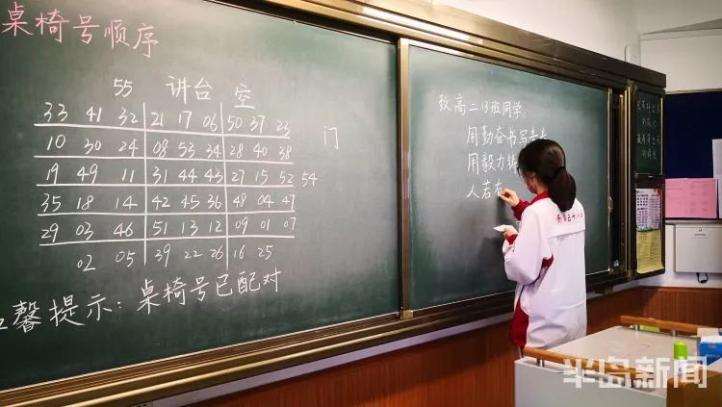 桌椅号顺序
55 讲台 空
33 41 32 21 17 06 50 37 23
门
10 30 24 08 53 34 28 40 38
19 49 11 31 44 43 27 15 52 54
35 18 14 42 45 36 48 04 47
29 03 46 51 13 12 09 01 07
02 05 39 22 26 16 25
馨提示：桌椅号已配对
致高二13班同学：
用勤奋书写
用毅力
人若
半岛新闻